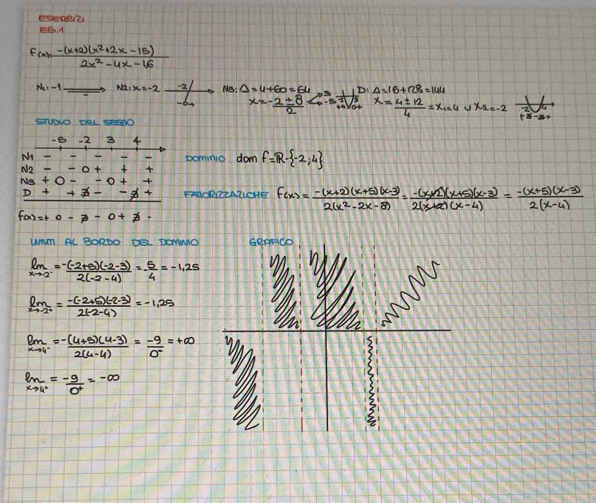 ESERCIZI
ES.1
f(x) = -(x+2)(x²+2x-15) / 2x²-4x-16
N1: -1 N2: x=-2 -2 N3: Δ=4+60=64 3 -5 D: Δ=16+128=144
x = -2±8 / 2 x = 4±12 / 4 = x₁=4 ∪ x₂=-2 -2 4
STUDIO DEL SEGNO
-5 -2 3 4
N1 - - - - -
N2 - - 0 + + +
N3 + 0 - - 0 + +
D + + ∄ - - ∄ +
f(x)= + 0 - ∄ - 0 + ∄ -
DOMINIO dom f=ℝ-{-2;4}
FATTORIZZAZIONE f(x) = -(x+2)(x+5)(x-3) / 2(x²-2x-8) = -(x+2)(x+5)(x-3) / 2(x+2)(x-4) = -(x+5)(x-3) / 2(x-4)
LIMITI AL BORDO DEL DOMINIO
lim x→-2⁻ = -(-2+5)(-2-3) / 2(-2-4) = 5/4 = -1,25
lim x→-2⁺ = -(-2+5)(-2-3) / 2(-2-4) = -1,25
lim x→4⁻ = -(4+5)(4-3) / 2(4-4) = -9 / 0⁻ = +∞
lim x→4⁺ = -9 / 0⁺ = -∞
GRAFICO